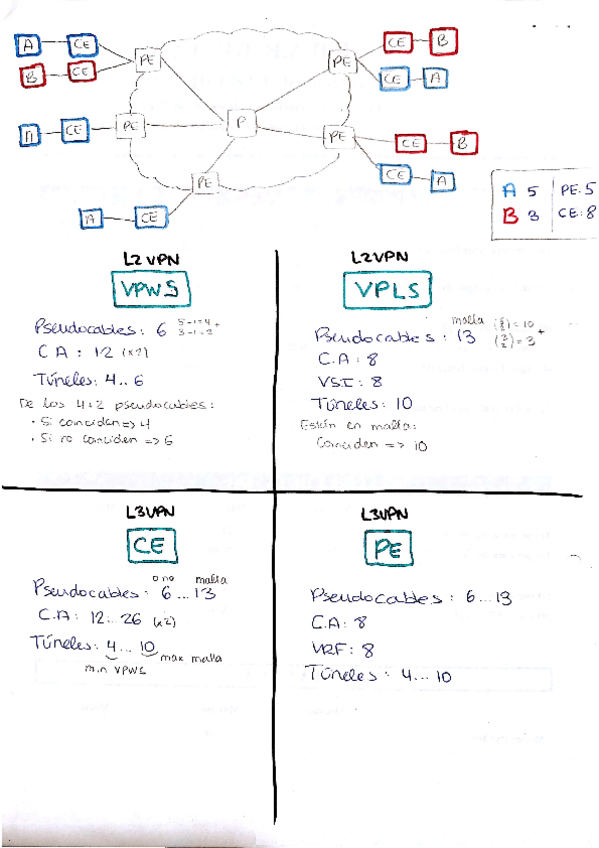 A CE PE PE CE B
B CE CE A
A CE PE P PE CE B
PE CE A
A CE
A 5 PE: 5
B 3 CE: 8
L2 VPN
VPWS
Pseudocables: 6 5-1=4 + 3-1=2
C A : 12 (x2)
Túneles: 4.. 6
De los 4+2 pseudocables:
· Si coinciden => 4
· Si no coinciden => 6
L2VPN
VPLS
malla
Pseudocables : 13 (5 2) = 10 + (3 2) = 3
C.A : 8
VSI : 8
Túneles : 10
Están en malla:
Coinciden => 10
L3VPN
CE
o no malla
Pseudocables : 6 ... 13
C.A : 12.. 26 (x2)
Túneles : 4 ... 10
min VPWS max malla
L3VPN
PE
Pseudocables : 6 ... 13
C.A : 8
VRF : 8
Túneles : 4 ... 10